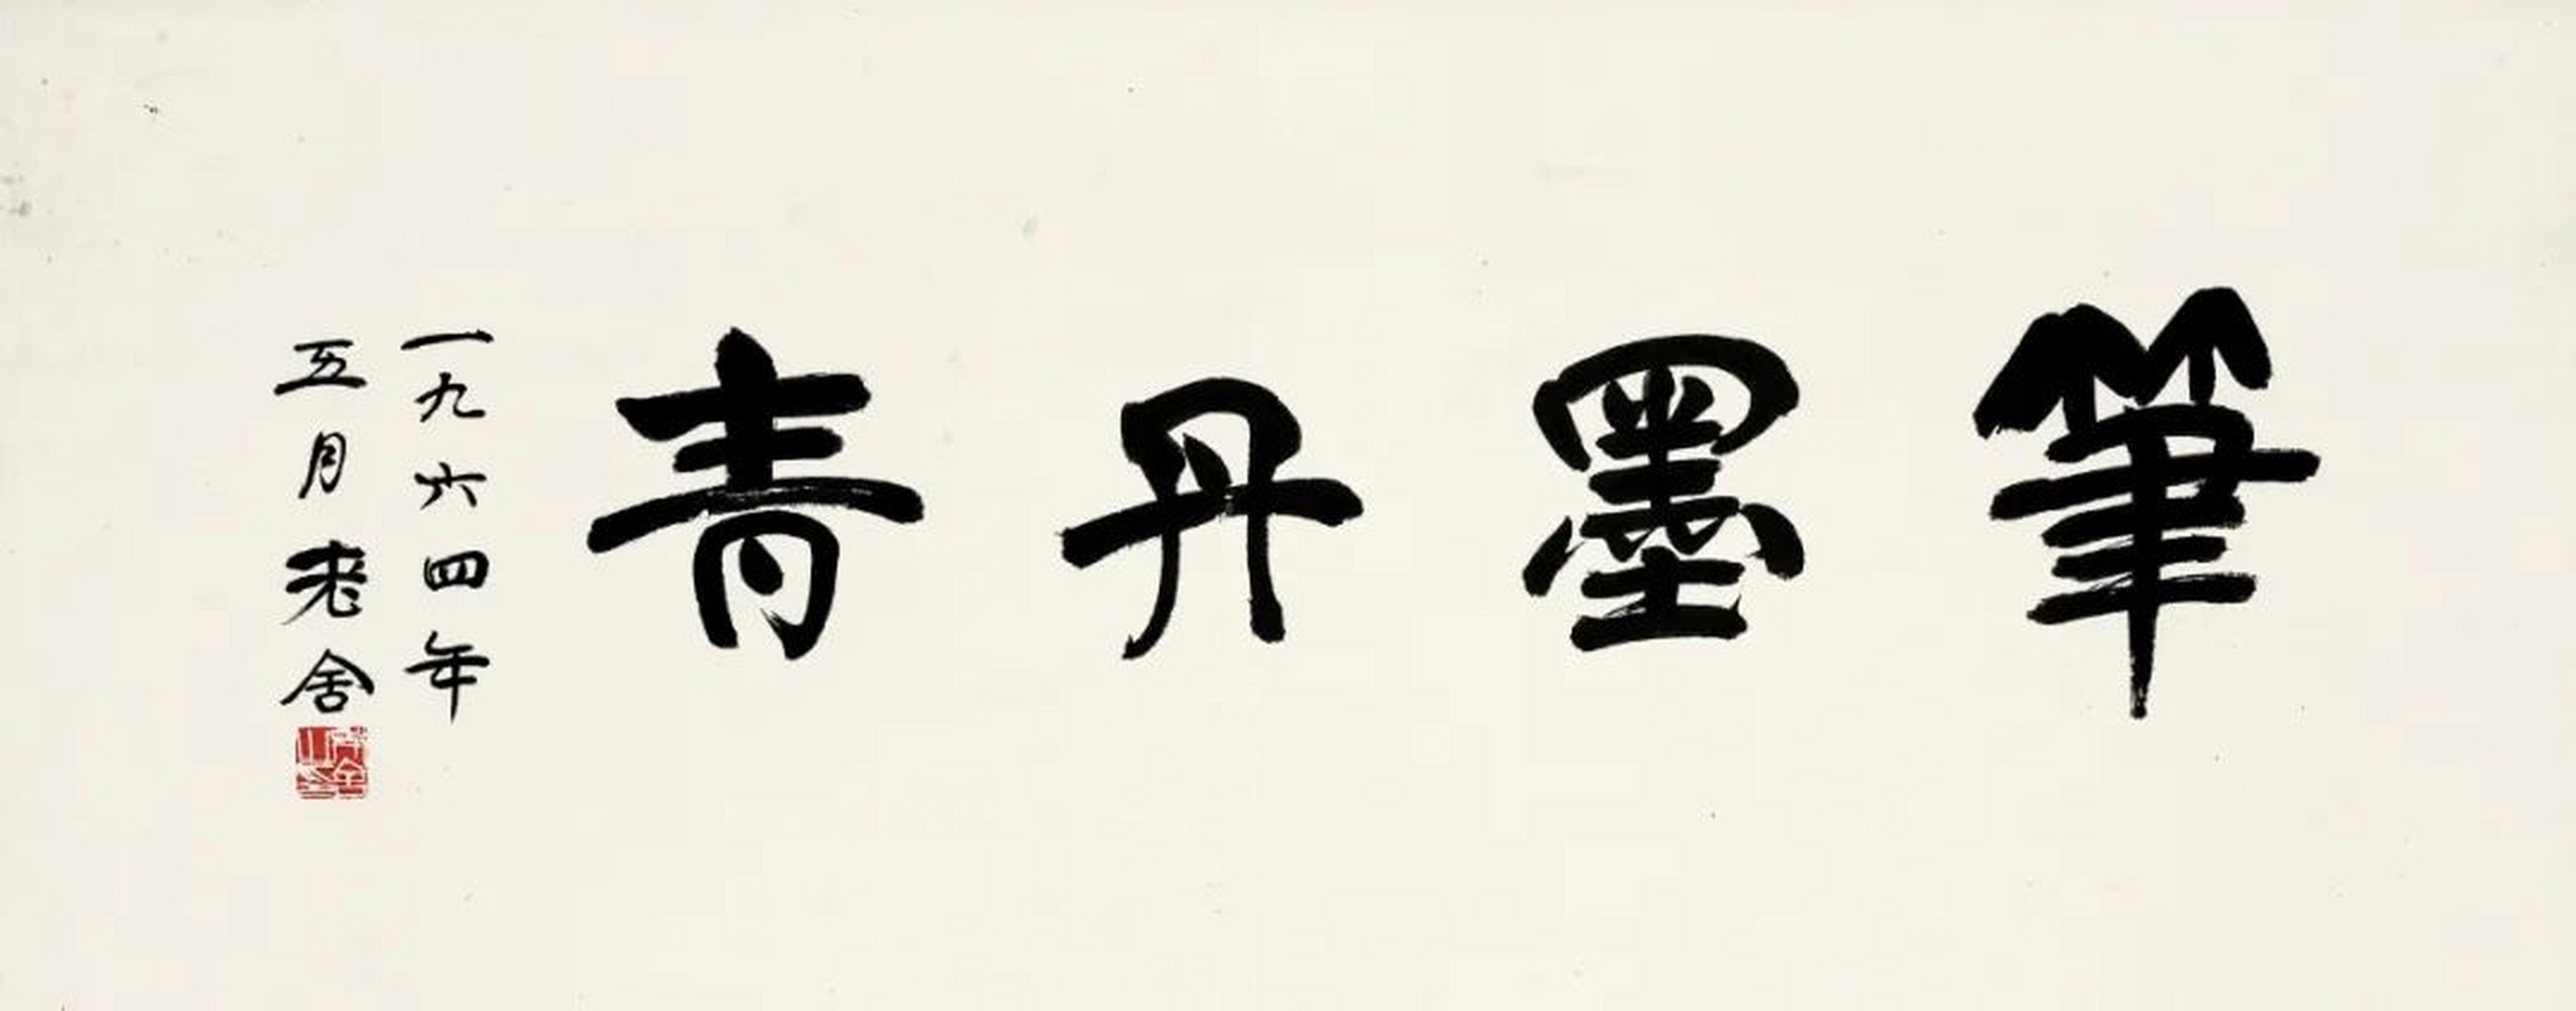 筆墨丹青
一九六四年
五月老舍